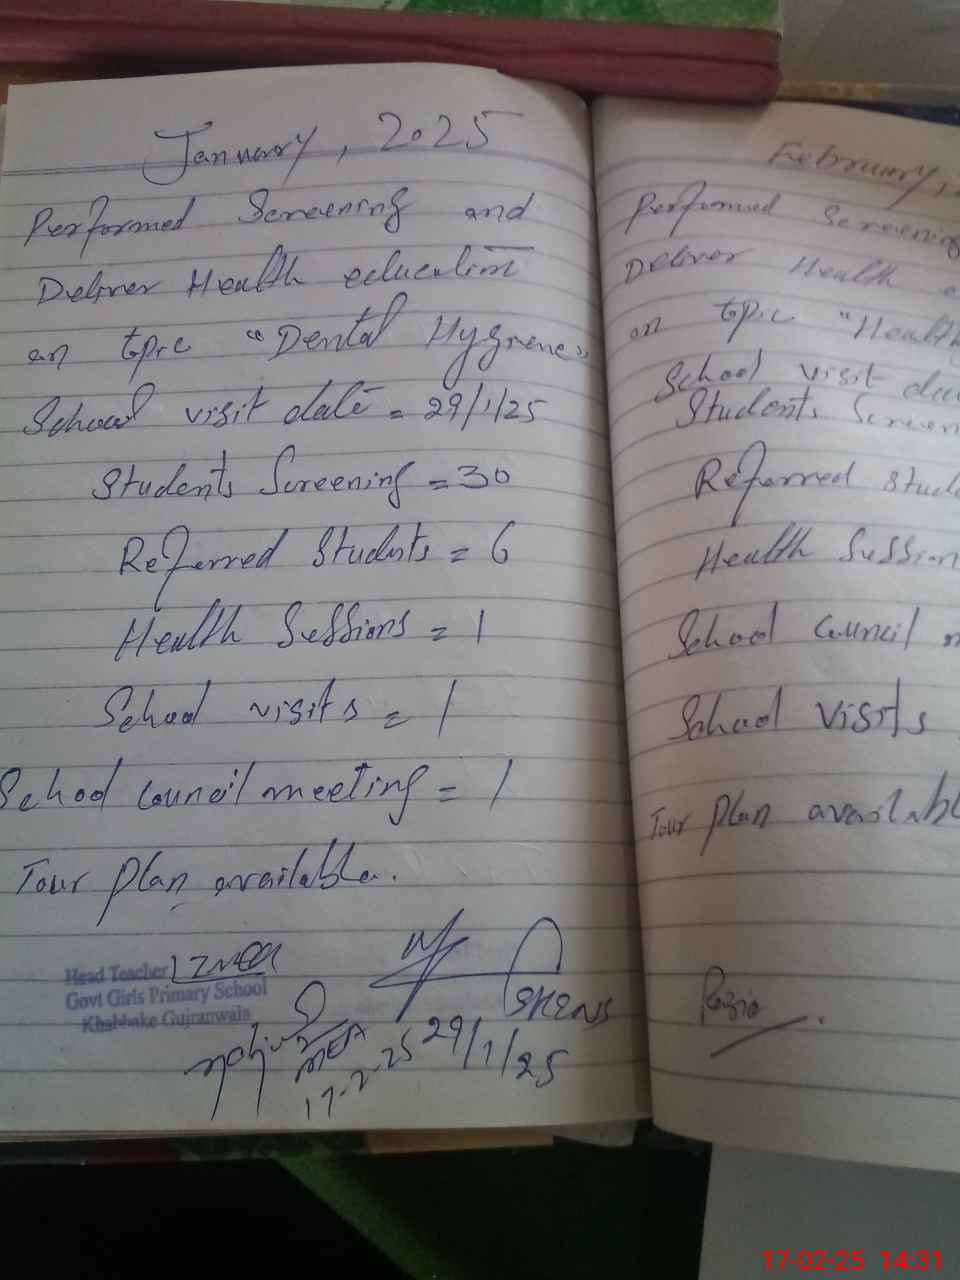 January, 2025
Performed Screening and
Deliver Health education
on topic "Dental Hygiene"
School visit date = 29/1/25
Students Screening = 30
Referred Students = 6
Health Sessions = 1
School visits = 1
School Council meeting = 1
Tour Plan available.
Head Teacher
Govt Girls Primary School
Gujranwala
MEA
17-2-25
29/1/25
February,
Performed Screening
Deliver Health e
on topic "Health
School visit da
Students Screen
Referred Stud
Health Session
School Council m
School Visits
Tour Plan availabl
Razia
17-02-25 14:31